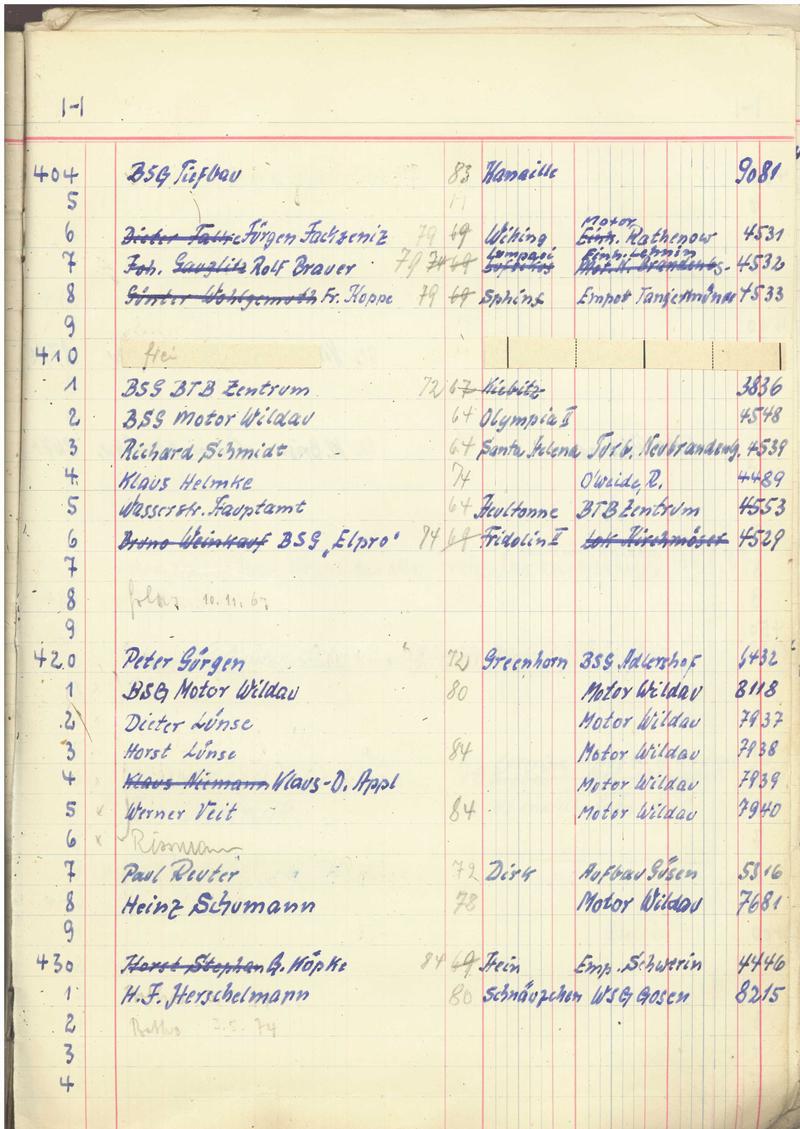 H
404 BSG Tiefbau 83 Kanaille 9081
5
6 Dieter Jürgen Fachzeniz 79 69 Wiking Motor Einh. Rathenow 4531
7 Joh. Gauglitz Rolf Brauer 79 74 69 Lumpazi Einh. Lehnin Mot. H. Brandenbg. 4532
8 Günter Wohlgemuth Fr. Hoppe 79 69 Sphinx Empor Tangermünde 4533
9
410 frei
1 BSG BTB Zentrum 72 67 Kiebitz 3836
2 BSG Motor Wildau 64 Olympia II 4548
3 Richard Schmidt 64 Santa Helena Turb. Neubrandenbg. 4539
4 Klaus Helmke 74 O'weide, R. 4489
5 Wasserstr. Hauptamt 64 Heultonne BTB Zentrum 4553
6 Bruno Weinkauf BSG „Elpro" 84 69 Fridolin II Lok Kirchmöser 4529
7
8 10.11.67
9
420 Peter Görgen 72 Greenhorn BSG Adlershof 6432
1 BSG Motor Wildau 80 Motor Wildau 8118
2 Dieter Lünse Motor Wildau 7937
3 Horst Lünse 84 Motor Wildau 7938
4 Klaus Niemann Klaus-D. Appl Motor Wildau 7939
5 Werner Veit 84 Motor Wildau 7940
6 Rissmann
7 Paul Reuter 72 Dirk Aufbau Güsen 5816
8 Heinz Schumann 78 Motor Wildau 7681
9
430 Horst Stephan G. Köpke 84 69 Hein Emp. Schwerin 4446
1 H.F. Herschelmann 80 Schnäuzchen WSG Gosen 8215
2 3.5.74
3
4